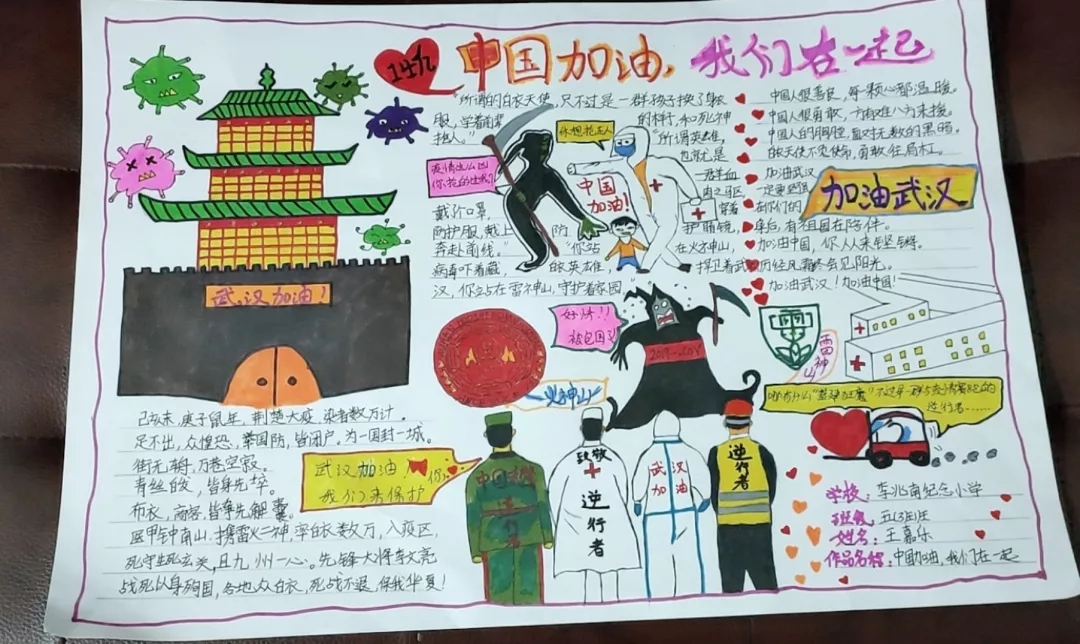 14亿
中国加油,我们在一起
"所谓的白衣天使,只不过是一群孩子换了身衣
服,学着前辈的样子,和死神
抢人。"
"所谓英雄,
你想抢走人
疫情这么凶
中国
加油!
戴个口罩,
防护服,戴上
护目镜,
奔赴前线。"
"你站
在火神山,
病毒吓着藏,
的英雄,
捍卫着武
汉,你站在雷神山,守护着家园。"
中国人很善良,每一颗心都温暖。
中国人很勇敢,一方有难八方来援。
中国人的胸膛,
白衣天使不负使命,勇敢往肩扛。
加油武汉
一定要坚强
在你们的
身后,有祖国在陪伴。
加油中国,你人人来
历经风霜终会见阳光。
加油武汉!加油中国!
加油武汉
武汉加油!
好烤!!
被包围了
2019-nCoV
火神山
雷
雷神山
逆行者……
己亥末,庚子鼠年,荆楚大疫,染者数万计。
足不出,众惶恐,举国防,皆闭户。为一国封一城。
街无车舟,万巷空寂。
青丝白发,皆身先卒。
布衣,商客,皆争先解囊。
医甲钟南山,携雷火二神,率白衣数万,入疫区,
死守生死玄关,且九州一心。先锋大将李文亮
战死以身殉国,各地众白衣,死战不退,保我华夏!
武汉加油
我们来保护
你
中国
逆行
致敬
逆行者
武汉
加油
逆行者
学校:李兆南纪念小学
班级:五(3)班
姓名:王嘉乐
作品名称:中国加油,我们在一起